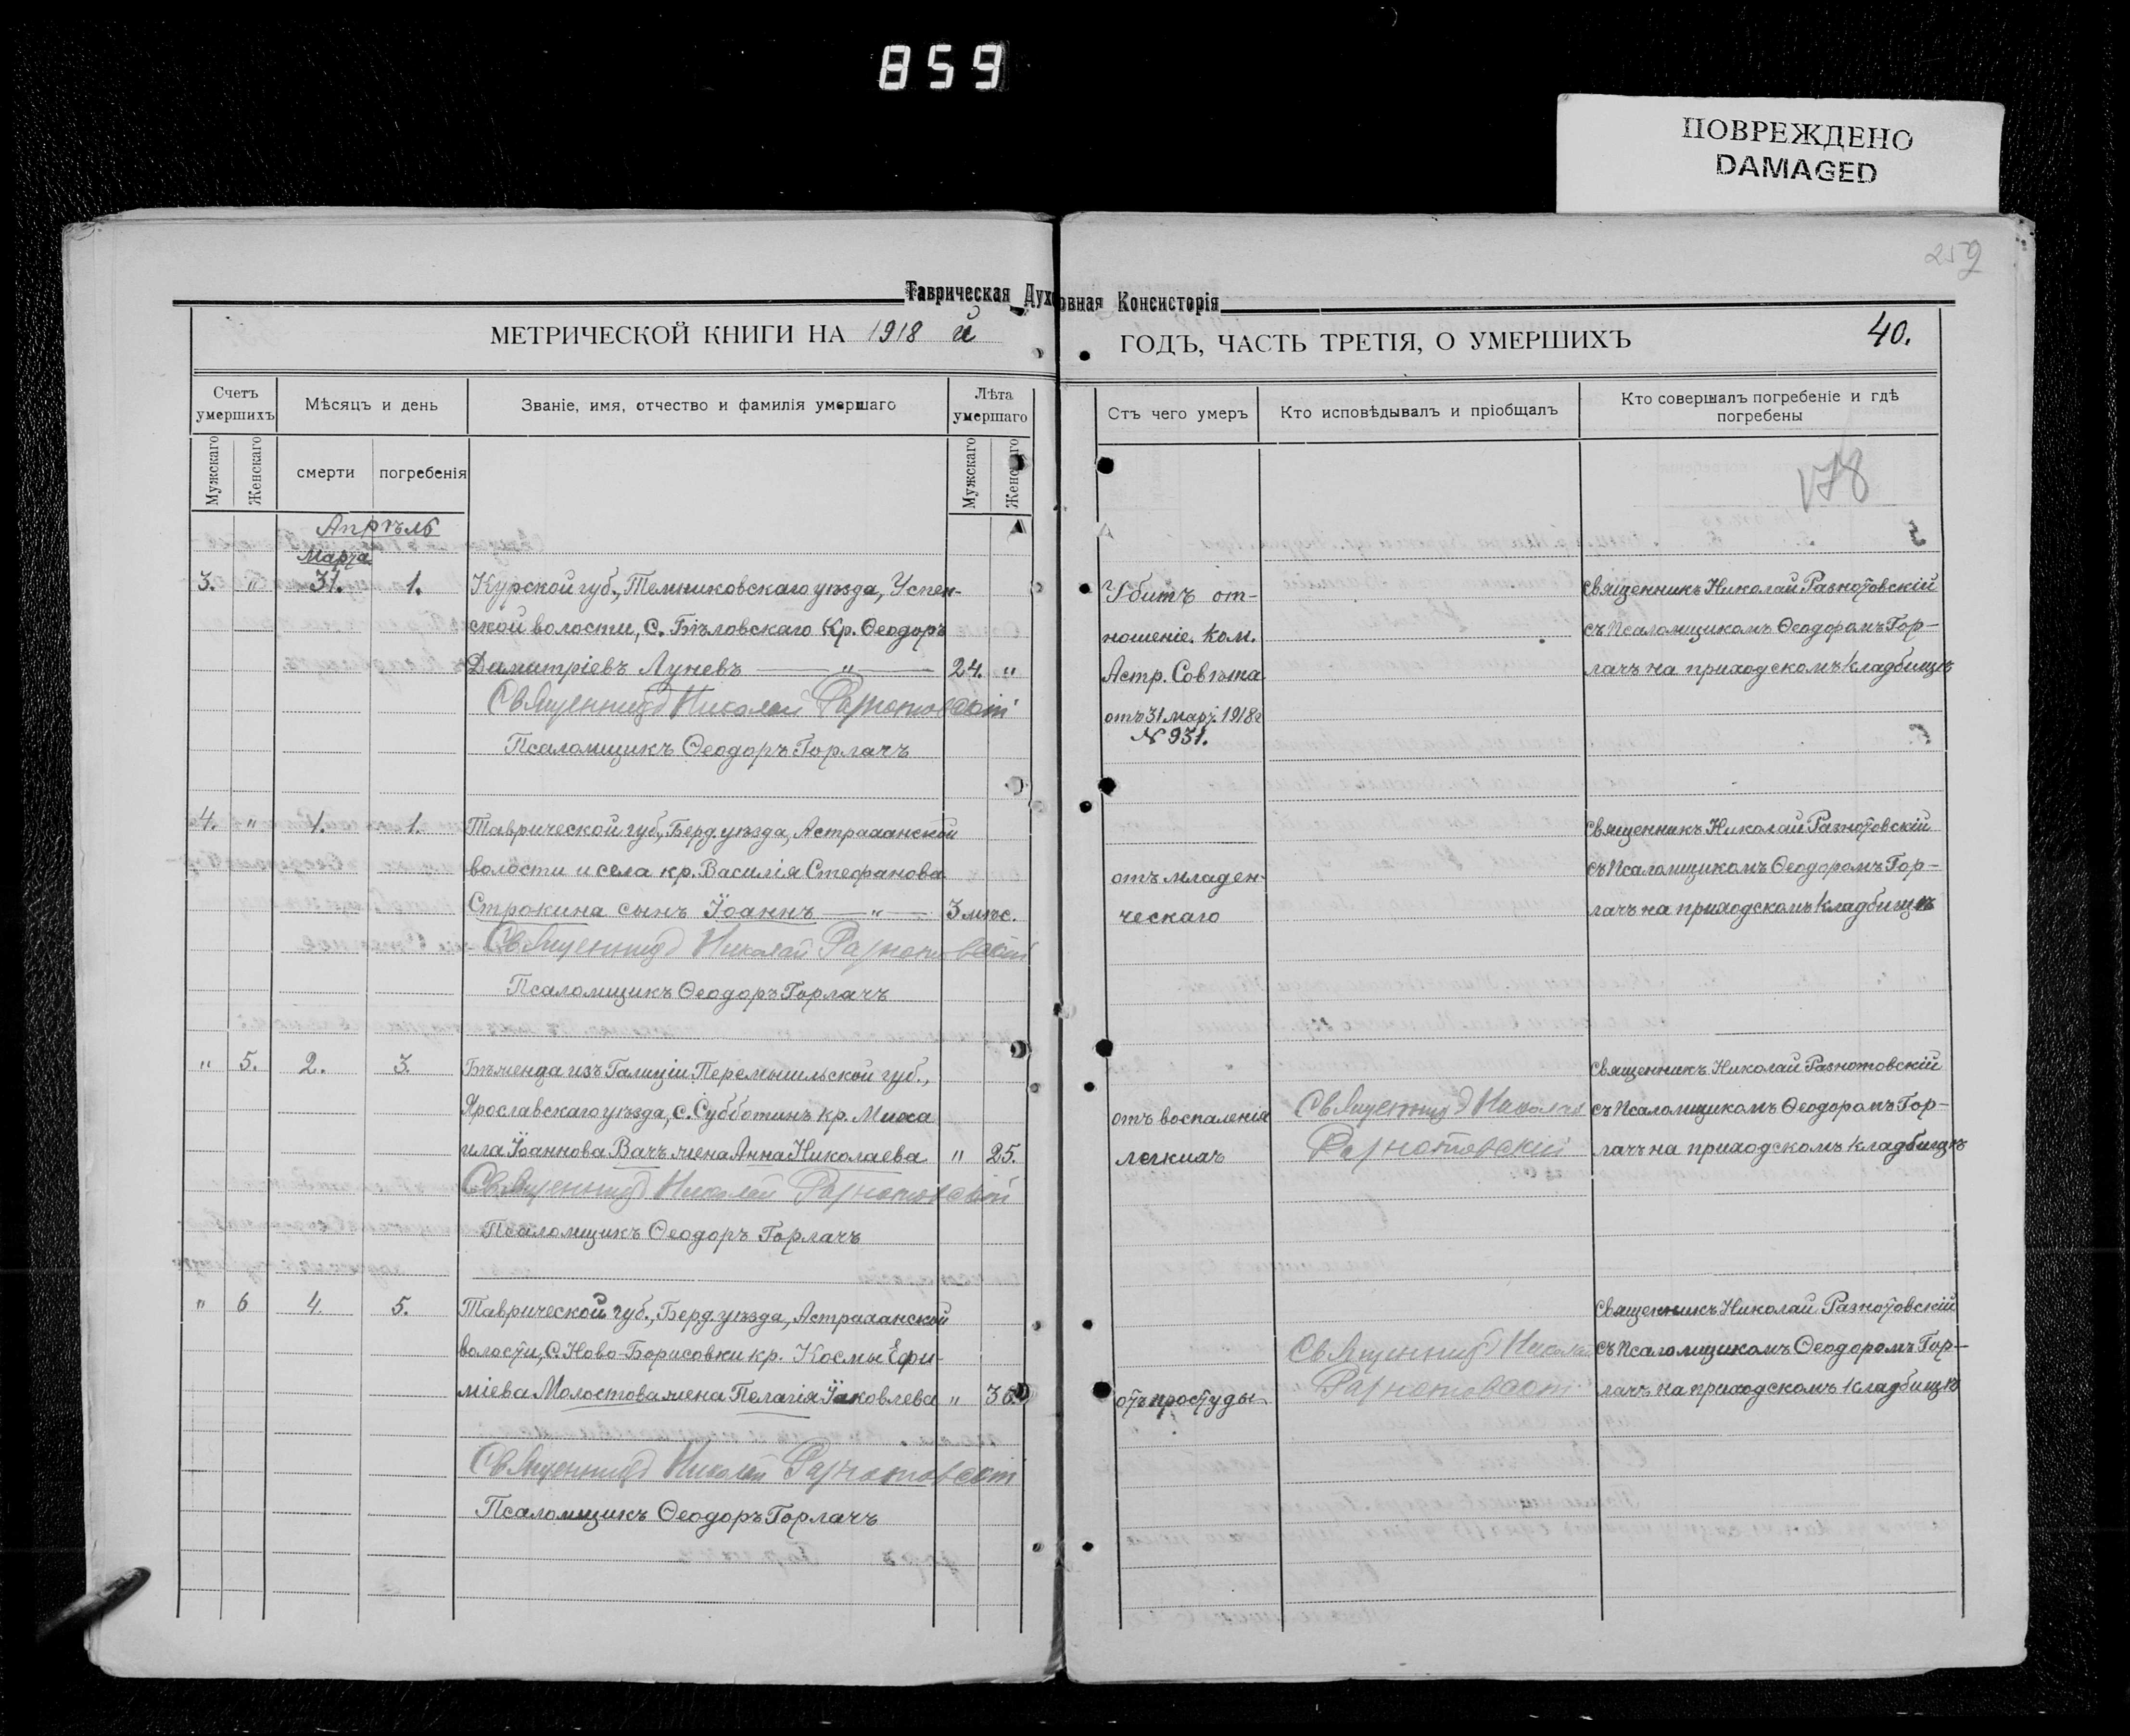 859
ПОВРЕЖДЕНО
DAMAGED
259
Таврическая Духовная Консисторія
МЕТРИЧЕСКОЙ КНИГИ НА 1918 й ГОДЪ, ЧАСТЬ ТРЕТІЯ, О УМЕРШИХЪ 40.
Счетъ умершихъ
Мѣсяцъ и день
Званіе, имя, отчество и фамилія умершаго
Лѣта умершаго
Стъ чего умеръ
Кто исповѣдывалъ и пріобщалъ
Кто совершалъ погребеніе и гдѣ погребены
Мужскаго
Женскаго
смерти
погребенія
Мужскаго
Женскаго
178
Апрѣль
Марта
3. " 31. 1. Курской губ., Темниковскаго уѣзда, Успен- Убитъ от- Священникъ Николай Разнотовскій
ской волости, С. Бѣловскаго Кр. Ѳеодоръ ношеніе. ком. съ Псаломщикомъ Ѳеодоромъ Гор-
Димитріевъ Луневъ — " — 24. " Астр. Совѣта лачъ на приходскомъ кладбищѣ
Священникъ Николай Разнотовскій отъ 31 март. 1918 г
№ 931.
Псаломщикъ Ѳеодоръ Горлачъ
4. " 1. 1. Таврической губ., Берд. уѣзда, Астраханской Священникъ Николай Разнотовскій
волости и села кр. Василія Стефанова отъ младен- съ Псаломщикомъ Ѳеодоромъ Гор-
Строкина сынъ Іоаннъ — " — 3 мѣс. ческаго лачъ на приходскомъ кладбищѣ
Священникъ Николай Разнотовскій
Псаломщикъ Ѳеодоръ Горлачъ
" 5. 2. 3. Бѣженца изъ Галиціи Перемышльской губ., Священникъ Николай Разнотовскій
Ярославскаго уѣзда, С. Субботинъ кр. Миха отъ воспаленія Священникъ Николай съ Псаломщикомъ Ѳеодоромъ Гор-
ила Іоаннова Вачъ жена Анна Николаева " 25. легкихъ Разнотовскій лачъ на приходскомъ кладбищѣ
Священникъ Николай Разнотовскій
Псаломщикъ Ѳеодоръ Горлачъ
" 6 4. 5. Таврической губ., Берд. уѣзда, Астраханской Священникъ Николай Разнотовскій
волости, С. Ново-Борисовки кр. Космы Ефи- Священникъ Николай съ Псаломщикомъ Ѳеодоромъ Гор-
міева Молостова жена Пелагія Іаковлева " 36. отъ простуды Разнотовскій лачъ на приходскомъ кладбищѣ
Священникъ Николай Разнотовскій
Псаломщикъ Ѳеодоръ Горлачъ